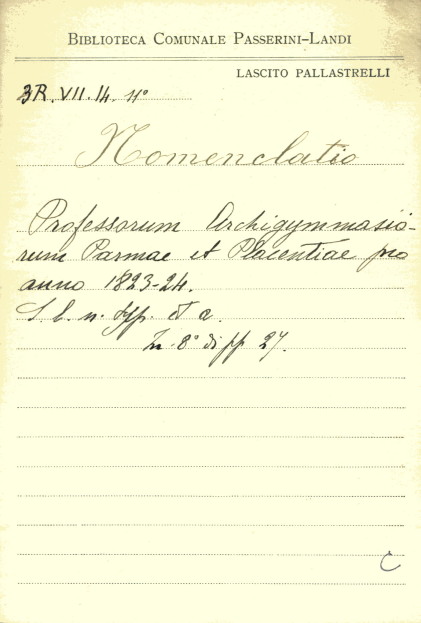 BIBLIOTECA COMUNALE PASSERINI-LANDI
LASCITO PALLASTRELLI
3R. VII. 14. 11°
Nomenclatio
Professorum Archigymnasio-
rum Parmae et Placentiae pro
anno 1823-24.
S. l. n. typ. et a.
In 8° di pp. 27.
C